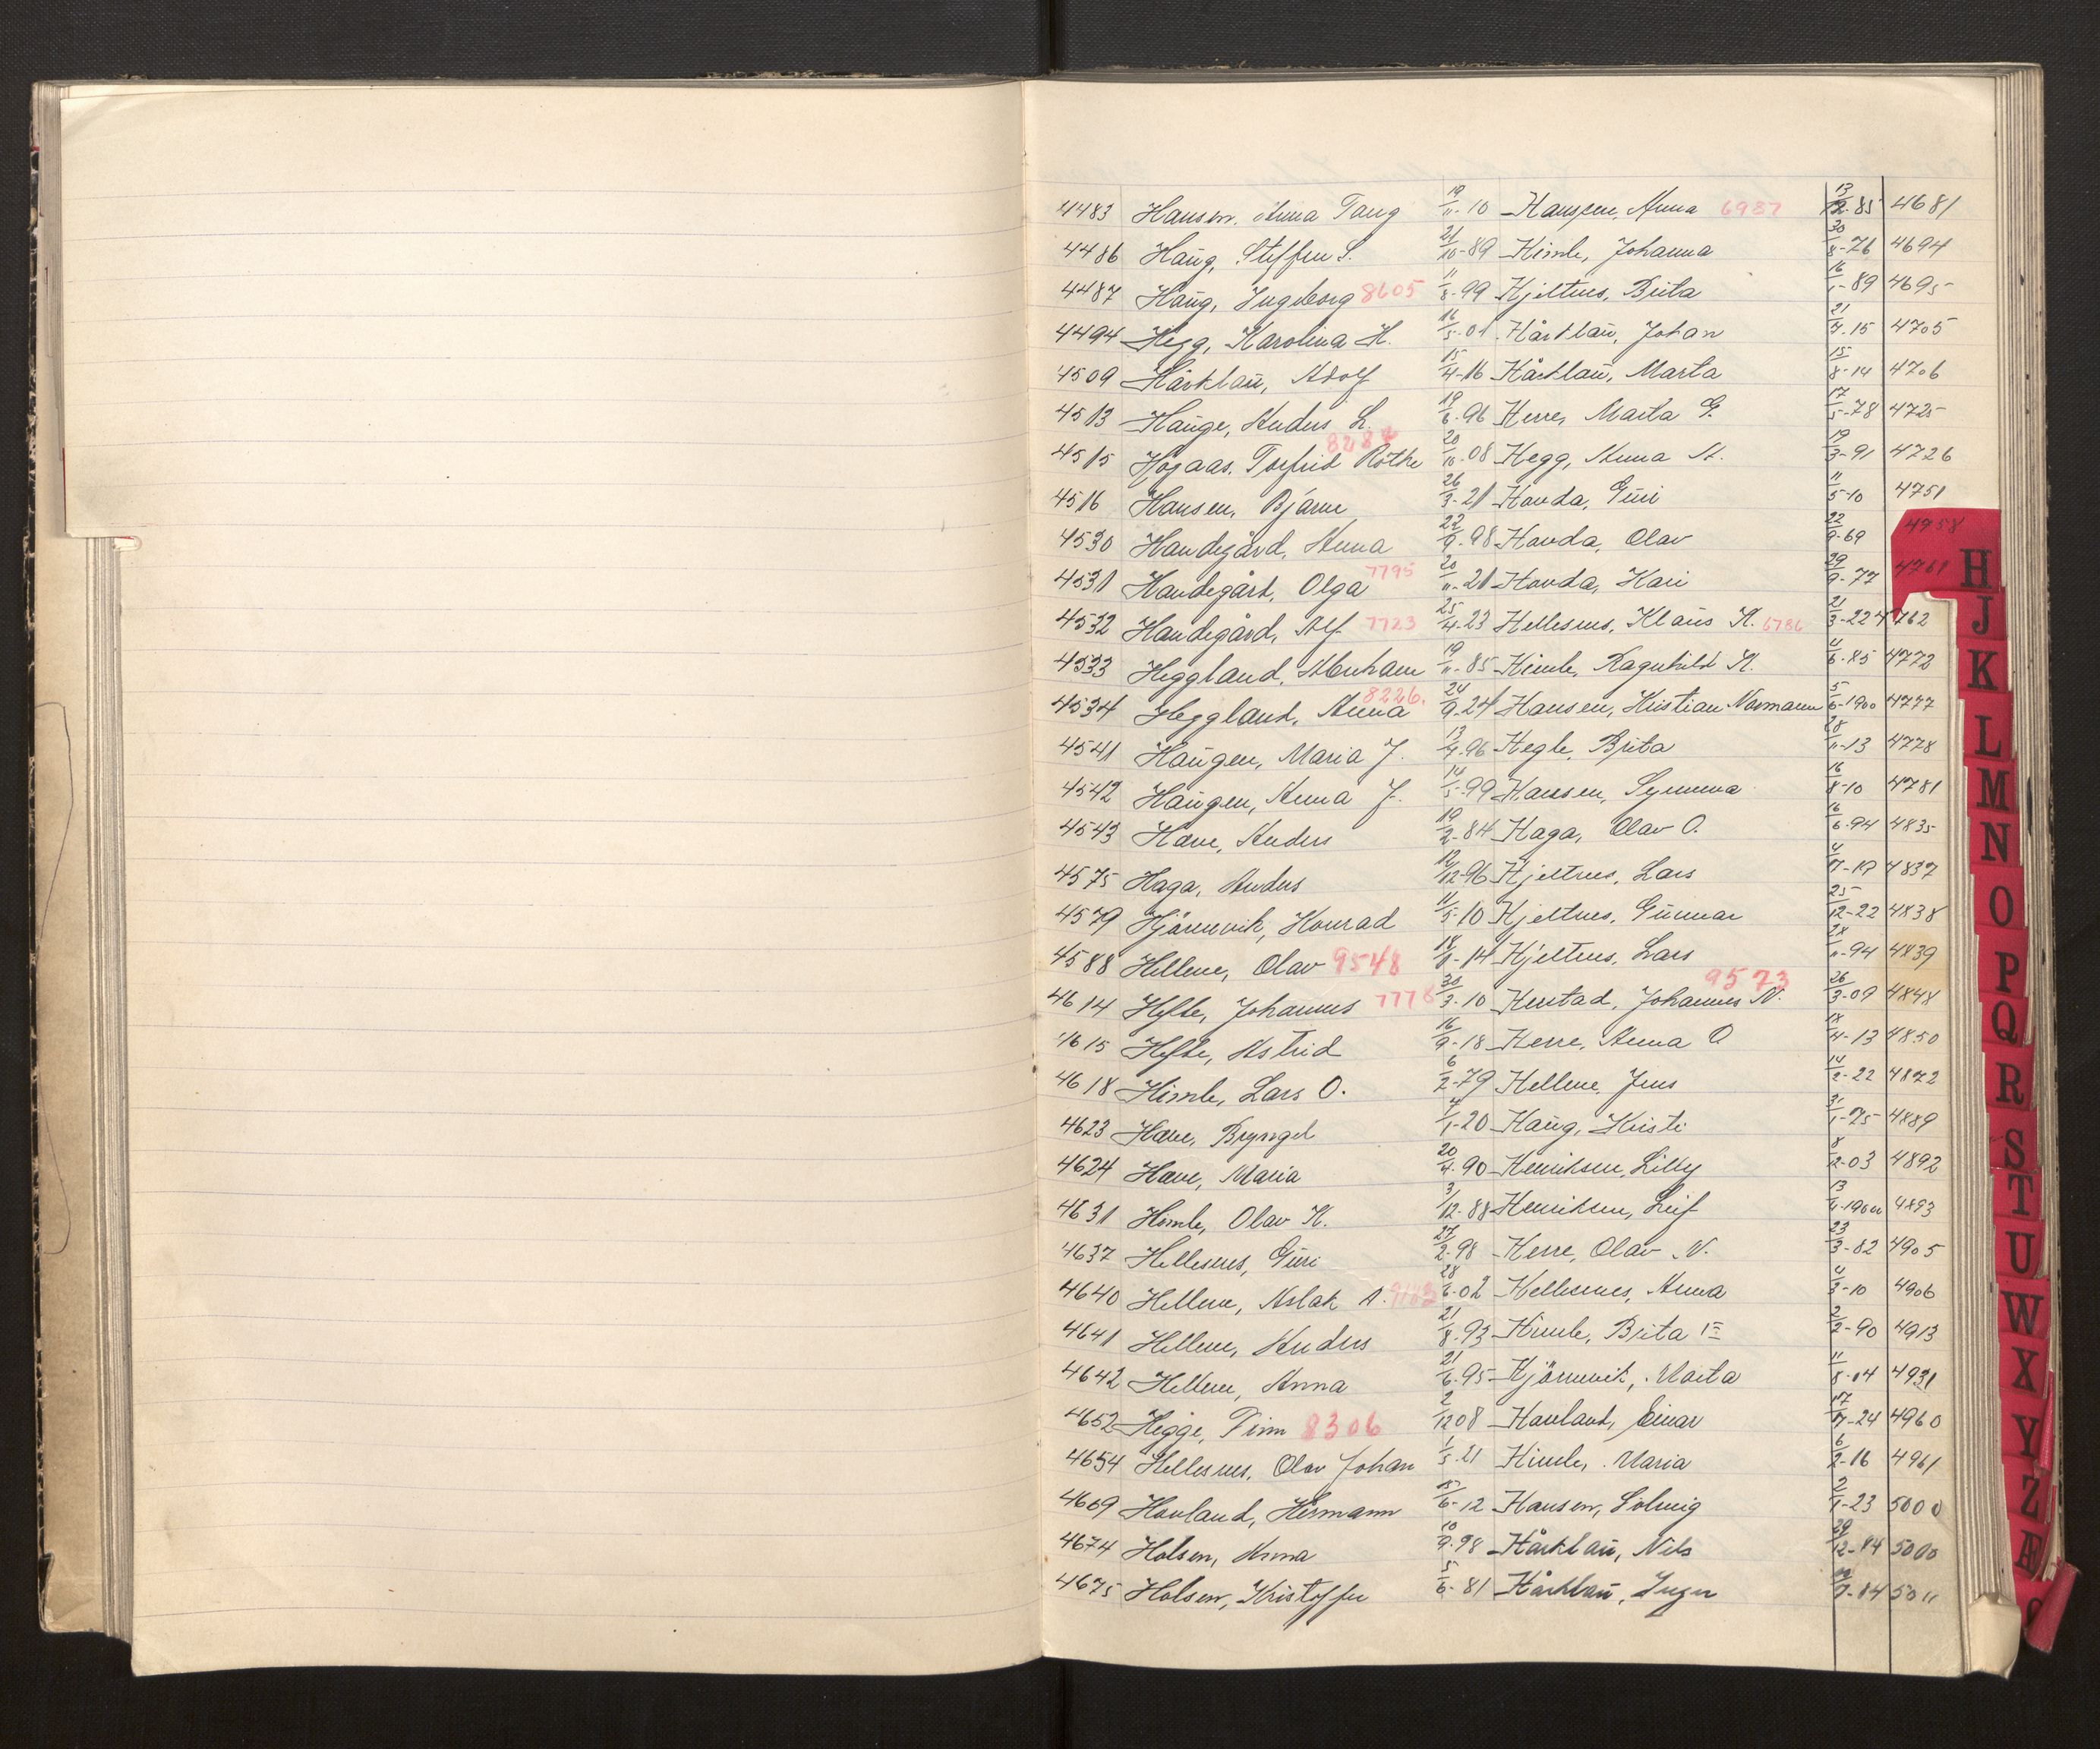 4483 Hansen, Anna Tang 19/11-10 Hanssen, Anna 6937 13/12-85 4681
4486 Haug, Steffen S. 21/10-89 Himle, Johanna 30/8-76 4694
4487 Haug, Ingeborg 8605 11/8-99 Hjeltnes, Brita 16/1-89 4695
4494 Hegg, Karolina H. 16/5-01 Hårklau, Johan 21/4-15 4705
4509 Hårklau, Adolf 15/4-16 Hårklau, Marta 15/8-14 4706
4513 Hauge, Anders L. 19/6-96 Herre, Marta G. 17/5-78 4725
4515 Hojaas, Torfrid Röthe 20/10-08 Hegg, Anna A. 19/3-91 4726
4516 Hansen, Bjarne 26/3-21 Hovda, Guri 11/5-10 4751
4530 Handegård, Anna 22/9-98 Hovda, Olav 22/9-69 4958
4531 Handegård, Olga 7795 20/11-21 Hovda, Kari 29/9-77 4761
4532 Handegård, Alf 7723 25/4-23 Hellesnes, Klaus K. 6786 21/3-22 4762
4533 Heggland, Abraham 19/11-85 Himle, Ragnhild K. 4/6-85 4772
4534 Heggland, Anna 8226. 24/9-24 Hansen, Kristian Normann 5/6-1900 4777
4541 Haugen, Maria J. 13/4-96 Hegle, Brita 28/11-13 4778
4542 Haugen, Anna J. 14/5-99 Hansen, Synneva 16/8-10 4781
4543 Hæve, Anders 19/2-84 Haga, Olav O. 16/6-94 4835
4575 Haga, Anders 12/12-96 Hjeltnes, Lars 4837
4579 Hjörnevik, Konrad 11/5-10 Hjeltnes, Gunnar 25/12-22 4838
4588 Hellene, Olav 9548 18/8-14 Hjeltnes, Lars 28/11-94 4839
4614 Hefte, Johannes 7778 30/3-10 Herstad, Johannes N. 9573 26/3-09 4848
4615 Hefte, Astrid 16/9-18 Herre, Anna O 18/4-13 4850
4618 Himle, Lars O. 6/2-79 Hellene, Jens 14/2-22 4872
4623 Hæve, Bryngel 4/1-20 Haug, Kristi 31/1-75 4889
4624 Hæve, Maria 20/4-90 Henriksen, Lilly 8/2-03 4892
4631 Himle, Olav K. 3/12-88 Henriksen, Leif 4893
4637 Hellesnes, Guri 27/2-98 Herre, Olav N. 23/3-82 4905
4640 Hellene, Aslak A. 9163 28/6-02 Hellesnes, Anna 4/3-10 4906
4641 Hellene, Anders 21/8-93 Himle, Brita 2/2-90 4913
4642 Hellene, Anna 21/6-95 Hjörnevik, Marta 11/8-04 4931
4652 Hegge, Finn 8306 2/12 08 Havland, Einar 17/7-24 4960
4654 Hellesnes, Olav Johan 1/5-21 Himle, Maria 6/2-16 4961
4669 Hovland, Hermann 15/6-12 Hansen, Solveig 2/1-23 5000
4674 Holsen, Anna 10/9-98 Hårklau, Nils 29/12-84 5010
4675 Holsen, Kristoffer 5/6-81 Hårklau, Inger 5011
H
J
K
L
M
N
O
P
Q
R
S
T
U
W
X
Y
Z
Æ